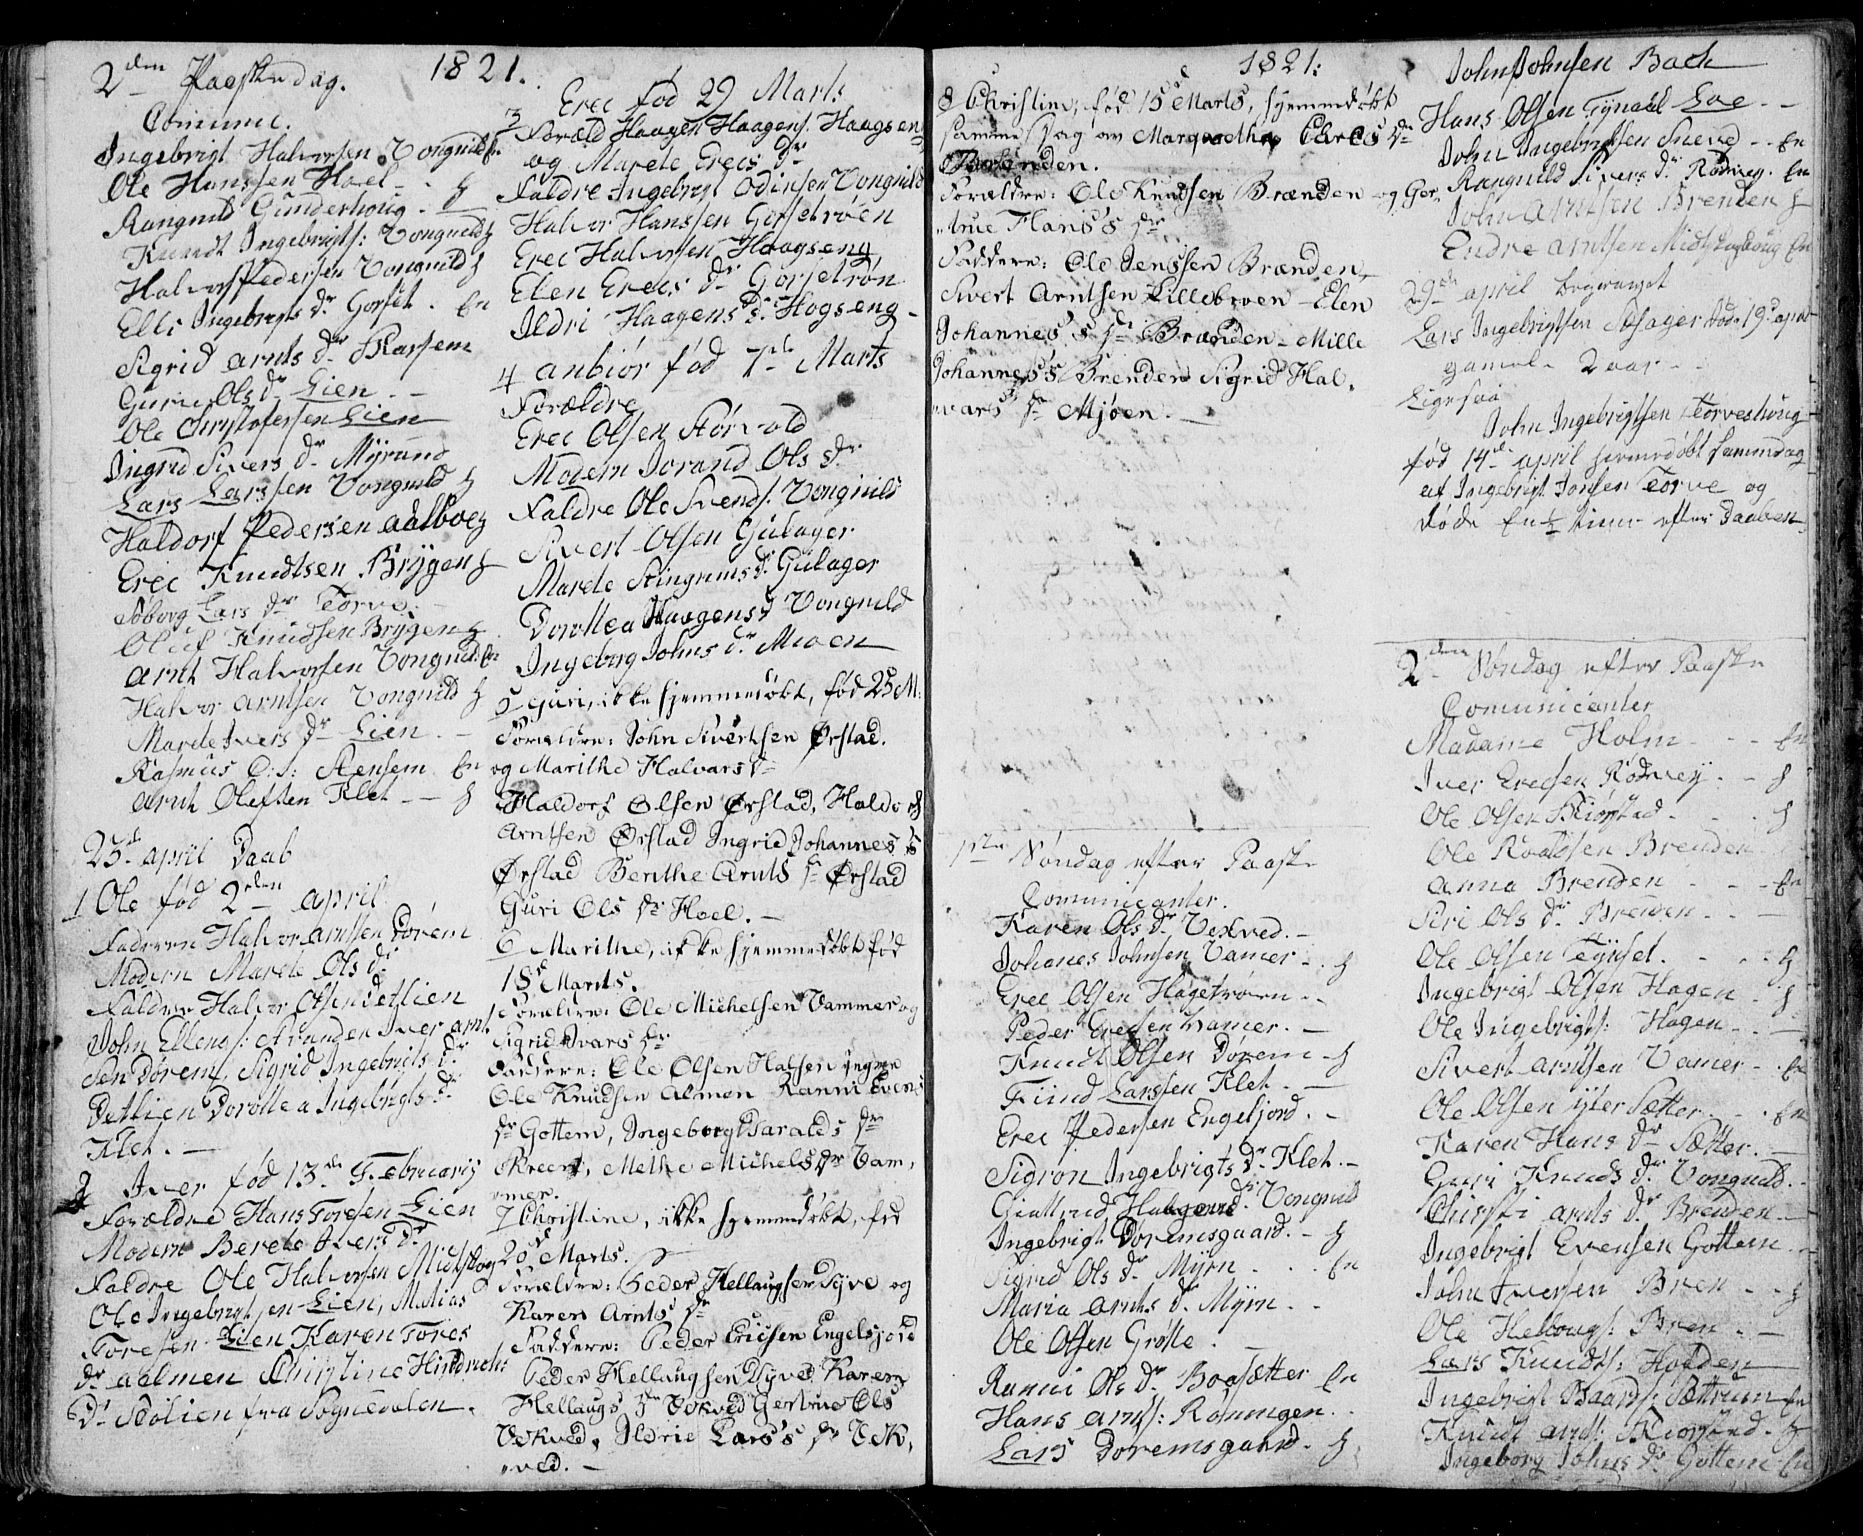 1821.
2den Paaskedag.
Commun.
Ingebrigt Halvorsen Vongnild En
Ole Hanssen Hoel
Rangnild Gunderhoug
Knudt Ingebrigts: Vongnild
Halvor Pedersen Vongnild
Elli Ingebrigts Dr Gorset. En
Sigrid Arnts Dr
Guru Ols Dr Lien
Ole Christofersen Lien
Ingrid Sivers Dr Myrund
Lars Larssen Vongnild
Haldorf Pedersen Aalboe
Erec Knudtsen Brygen
Lars Dr Torve
Oluf Knudsen Brygen
Arnt Halvorsen Vongnild En
Halvor Arntsen Vongnild
Marete Ivers Dr Lien
Rasmus O:s: Stensem En
Arnt Olefsen Klet
23d April Daab
1 Ole fød 2den April
Faderen Halvor Arntsen Dorem
Modern Marete Ols Dr
Faddre Halvor Olsen Detlien
John Ellens: Stranden Iver Arnt
sen Dorem, Sigrid Ingebrigts Dr
Detlien Dorottea Ingebrigts Dr
Klet.
2 Iver fød 13de Februarij
Forældre Hans Toresen Lien
Modern Berete Ivers Dr
Faldre Ole Halvorsen Midtskoug
Ole Ingebrigtsen Lien, Matias
Toresen Lien Karen Tores
Dr Aalmen Christine Hindrich:
Dr Stolien fra Sognedalen.
3 Erec fød 29 Marts
Foræld Haagen Haagens. Haagseng
og Marete Erecs Dr
Faldre Ingebrigt Odinsen Vongnild
Halvor Hanssen Gorsetrøen
Erec Halvorsen Haagseng
Elen Erecs Dr Gorsetrøn
Ildri Haagens Dr Hogseng
4 Anbiør fød 7de Marts
Forældre
Erec Olsen Størvold
Modern Jorand Ols Dr
Faldre Ole Svends. Vongnild
Sivert Olsen Gulager
Marete Steingrims Dr Gulager
Dorottea Haagens Dr Vongnild
Ingeborg Johns Dr Mioen
5 Guri, ikke hjemmedøbt, fød 25 M:
Forældre: John Sivertsen Ørstad.
og Marithe Halvars Dr
Haldorf Olsen Ørstad, Haldor
Arntsen Ørstad Ingrid Johannes's
Ørstad Berithe Arnts Dr Ørstad
Guri Ols Dr Hoel.
6 Marithe, ikke hjemmedøbt fød
18d Marts.
Forældre: Ole Michelsen Vammer og
Sigrid Ivars Dr
Faddere: Ole Olsen Halsen yngre
Ole Knudsen Almen Ranni Evens
Dr Gottem, Ingeborg Haralds Dr
Mette Michels Dr Vam,
mer.
7 Christine, ikke hjemmedøbt, fød
20d Marts.
Forældre: Peder Hellaugsen Dyve og
Karen Arnts Dr
Faddere: Peder Ericsen Engelsjord
Peder Hellaugsen Dyve Karen
Hellaugs Dr Vekved Gertrue Ols
Vekved, Ildrie Lars's Dr Vek,
ved.
1821:
8 Christine, fød 15d Marts, hjemmedøbt
samme Dag av Margrethe Carls Dr
Brænden.
Forældre: Ole Knudsen Brænden og Ger,
true Hans's Dr
Faddere: Ole Jenssen Brænden,
Sivert Arntsen Lillebroen - Elen
Johannes's Dr Brænden - Mille
Johannes's Brenden Sigrid Hal,
vars Dr Mjøen.
1ste Søndag efter Paaske
Communicanter.
Karen Ols Dr Vekved.
Johanes Johnsen Vamer
Erec Olsen Hagetrøen
Peder Erecsen Vamer.
Knudt Olsen Dorem
Fiind Larssen Klet.
Erec Pedersen Engelsjord.
Sigron Ingebrigts Dr Klet.
Vongnild
Ingebrigt Doremsgaard.
Sigrid Ols Dr Myrn En
Maria Arnts Dr Myrn.
Ole Olsen Grøtte
Ranni Ols Dr Boasætter En
Hans Arnts: Roningen
Lars Doremsgaard.
John Johnsen Bach
Hans Olsen Loe
John Ingebrigtsen Sneve En
Rangnild Sivers Dr Rodvey. En
John Arntsen Brenden
Endre Arntsen Midtskoug En
29de April begravet
Lars Ingebrigtsen døde 19d April
gamel 2 aar
Ligesaa
John Ingebrigtsen Torveshoug
fød 14de April hjemmedøbt sammedag
af Ingebrigt Jonsen Torve og
døde En ½ time efter Daaben
2den Søndag efter Paaske
Comunicanter
Madame Holm En
Iver Erecsen Rodvey
Ole Olsen Biørstad
Ole Roaldsen Brenden
Anna Brenden En
Siri Ols Dr Brenden
Ole Olsen Tynset.
Ingebrigt Olsen Hagen
Ole Ingebrigts: Hagen
Sivert Arntsen Vamer En
Ole Olsen ytersætter En
Karen Hans Dr Sætter.
Guri Knuds Dr Vongnild.
Christi Arnts Dr Brenden
Ingebrigt Evensen Gottem
John Iversen Bren
Ole Hellougs: Bren
Lars Knudts: Holden
Ingebrigt Baards: Sættrum En
Knudt Arnts:
Ingeborg Johns Dr Gottem En